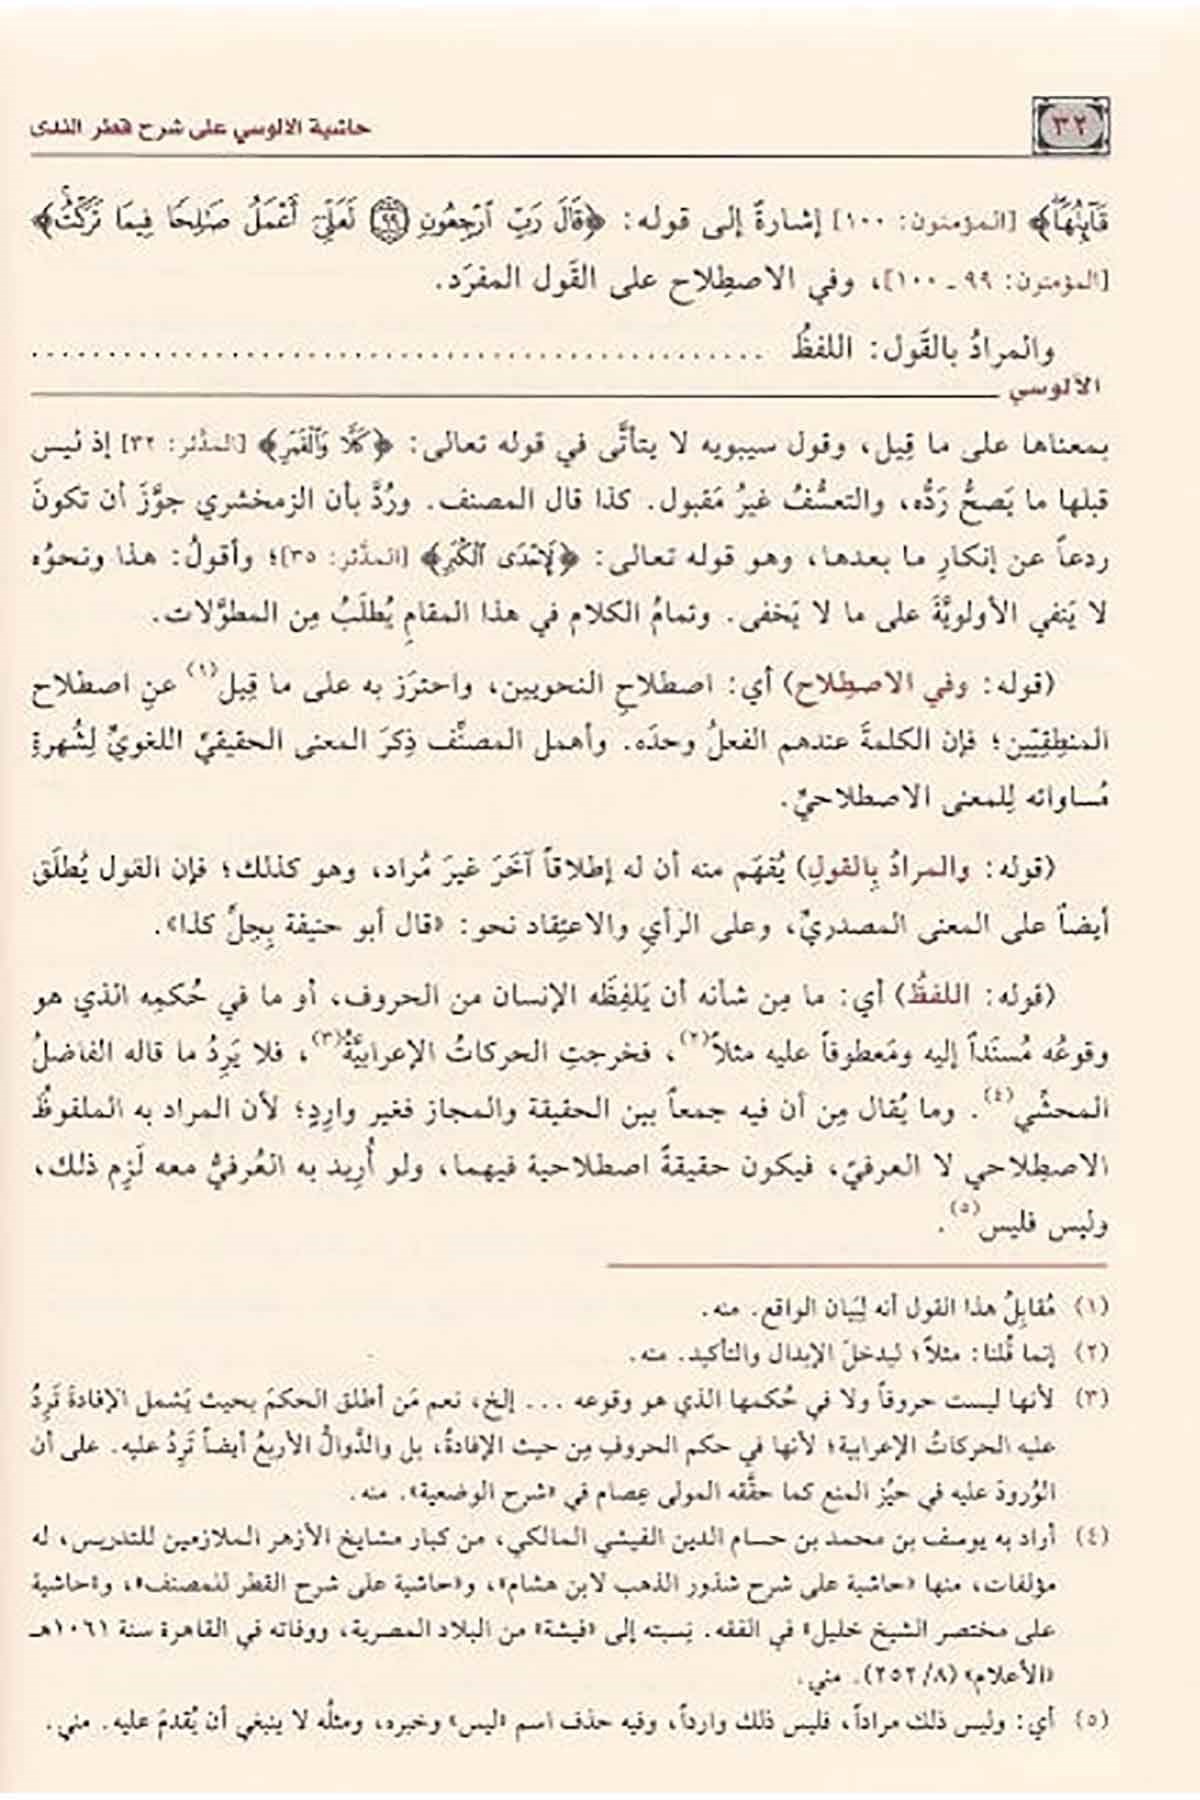 ٣٢
حاشية الآلوسي على شرح قطر الندى
قَآئِلُهَا﴾ [المؤمنون: ١٠٠] إشارةً إلى قوله: ﴿قَالَ رَبِّ ٱرۡجِعُونِ ٩٩ لَعَلِّيٓ أَعۡمَلُ صَٰلِحٗا فِيمَا تَرَكۡتُۚ﴾
[المؤمنون: ٩٩ ـ ١٠٠]، وفي الاصطِلاح على القَول المفرَد.
والمرادُ بالقَول: اللفظُ ........................................
الآلوسي
بمعناها على ما قِيل، وقول سيبويه لا يتأتَّى في قوله تعالى: ﴿كَلَّا وَٱلۡقَمَرِ﴾ [المدَّثر: ٣٢] إذ ليس
قبلها ما يَصحُّ رَدُّه، والتعسُّفُ غيرُ مَقبول. كذا قال المصنف. ورُدَّ بأن الزمخشري جوَّزَ أن تكونَ
ردعاً عن إنكارِ ما بعدها، وهو قوله تعالى: ﴿لَإِحۡدَى ٱلۡكُبَرِ﴾ [المدَّثر: ٣٥]؛ وأقولُ: هذا ونحوُه
لا يَنفي الأولويَّةَ على ما لا يَخفى. وتمامُ الكلام في هذا المقامِ يُطلَبُ مِن المطوَّلات.
(قوله: وفي الاصطِلاح) أي: اصطلاحِ النحويين، واحترَز به على ما قِيل(١) عنِ اصطلاح
المنطِقِيِّين؛ فإن الكلمةَ عندهم الفعلُ وحدَه. وأهمل المصنِّف ذِكرَ المعنى الحقيقيِّ اللغويِّ لِشُهرةِ
مُساواته لِلمعنى الاصطلاحيِّ.
(قوله: والمرادُ بِالقولِ) يُفهَم منه أن له إطلاقاً آخَرَ غيرَ مُراد، وهو كذلك؛ فإن القول يُطلَق
أيضاً على المعنى المصدريِّ، وعلى الرَأيِ والاعتِقاد نحو: «قال أبو حنيفة بِحِلِّ كذا».
(قوله: اللفظُ) أي: ما مِن شأنه أن يَلفِظَه الإنسان من الحروف، أو ما في حُكمِه الذي هو
وقوعُه مُسنَداً إليه ومَعطوفاً عليه مثلاً(٢)، فخرجتِ الحركاتُ الإعرابيَّةُ(٣)، فلا يَرِدُ ما قاله الفاضلُ
المحشِّي(٤). وما يُقال مِن أن فيه جمعاً بين الحقيقة والمجاز فغير وارِدٍ؛ لأن المراد به الملفوظُ
الاصطلاحي لا العرفيّ، فيكون حقيقةً اصطلاحية فيهما، ولو أُرِيد به العُرفيُّ معه لَزِم ذلك،
وليس فليس(٥).
(١) مُقابِلُ هذا القول أنه لِبَيان الواقع. منه.
(٢) إنما قُلنا: مثلاً؛ ليدخلَ الإبدال والتأكيد. منه.
(٣) لأنها ليست حروفاً ولا في حُكمها الذي هو وقوعه ... إلخ، نعم مَن أطلق الحكمَ بحيث يَشمل الإفادةَ تَرِدُ
عليه الحركاتُ الإعرابية؛ لأنها في حكم الحروفِ مِن حيث الإفادةُ، بل والدَّوالُّ الأربعُ أيضاً تَرِدُ عليه. على أن
الوُرودَ عليه في حيِّز المنع كما حقَّقه المولى عِصام في «شرح الوضعية». منه.
(٤) أراد به يوسف بن محمد بن حسام الدين الفيشي المالكي، من كبار مشايخ الأزهر الملازمين للتدريس، له
مؤلفات، منها «حاشية على شرح شذور الذهب لابن هشام»، و«حاشية على شرح القطر للمصنف»، و«حاشية
على مختصر الشيخ خليل» في الفقه. نِسبته إلى «فيشة» من البلاد المصرية، ووفاته في القاهرة سنة ١٠٦١هـ
«الأعلام» (٨/ ٢٥٢). مني.
(٥) أي: وليس ذلك مراداً، فليس ذلك وارداً، وفيه حذف اسم «ليس» وخبره، ومثلُه لا ينبغي أن يُقدمَ عليه. مني.